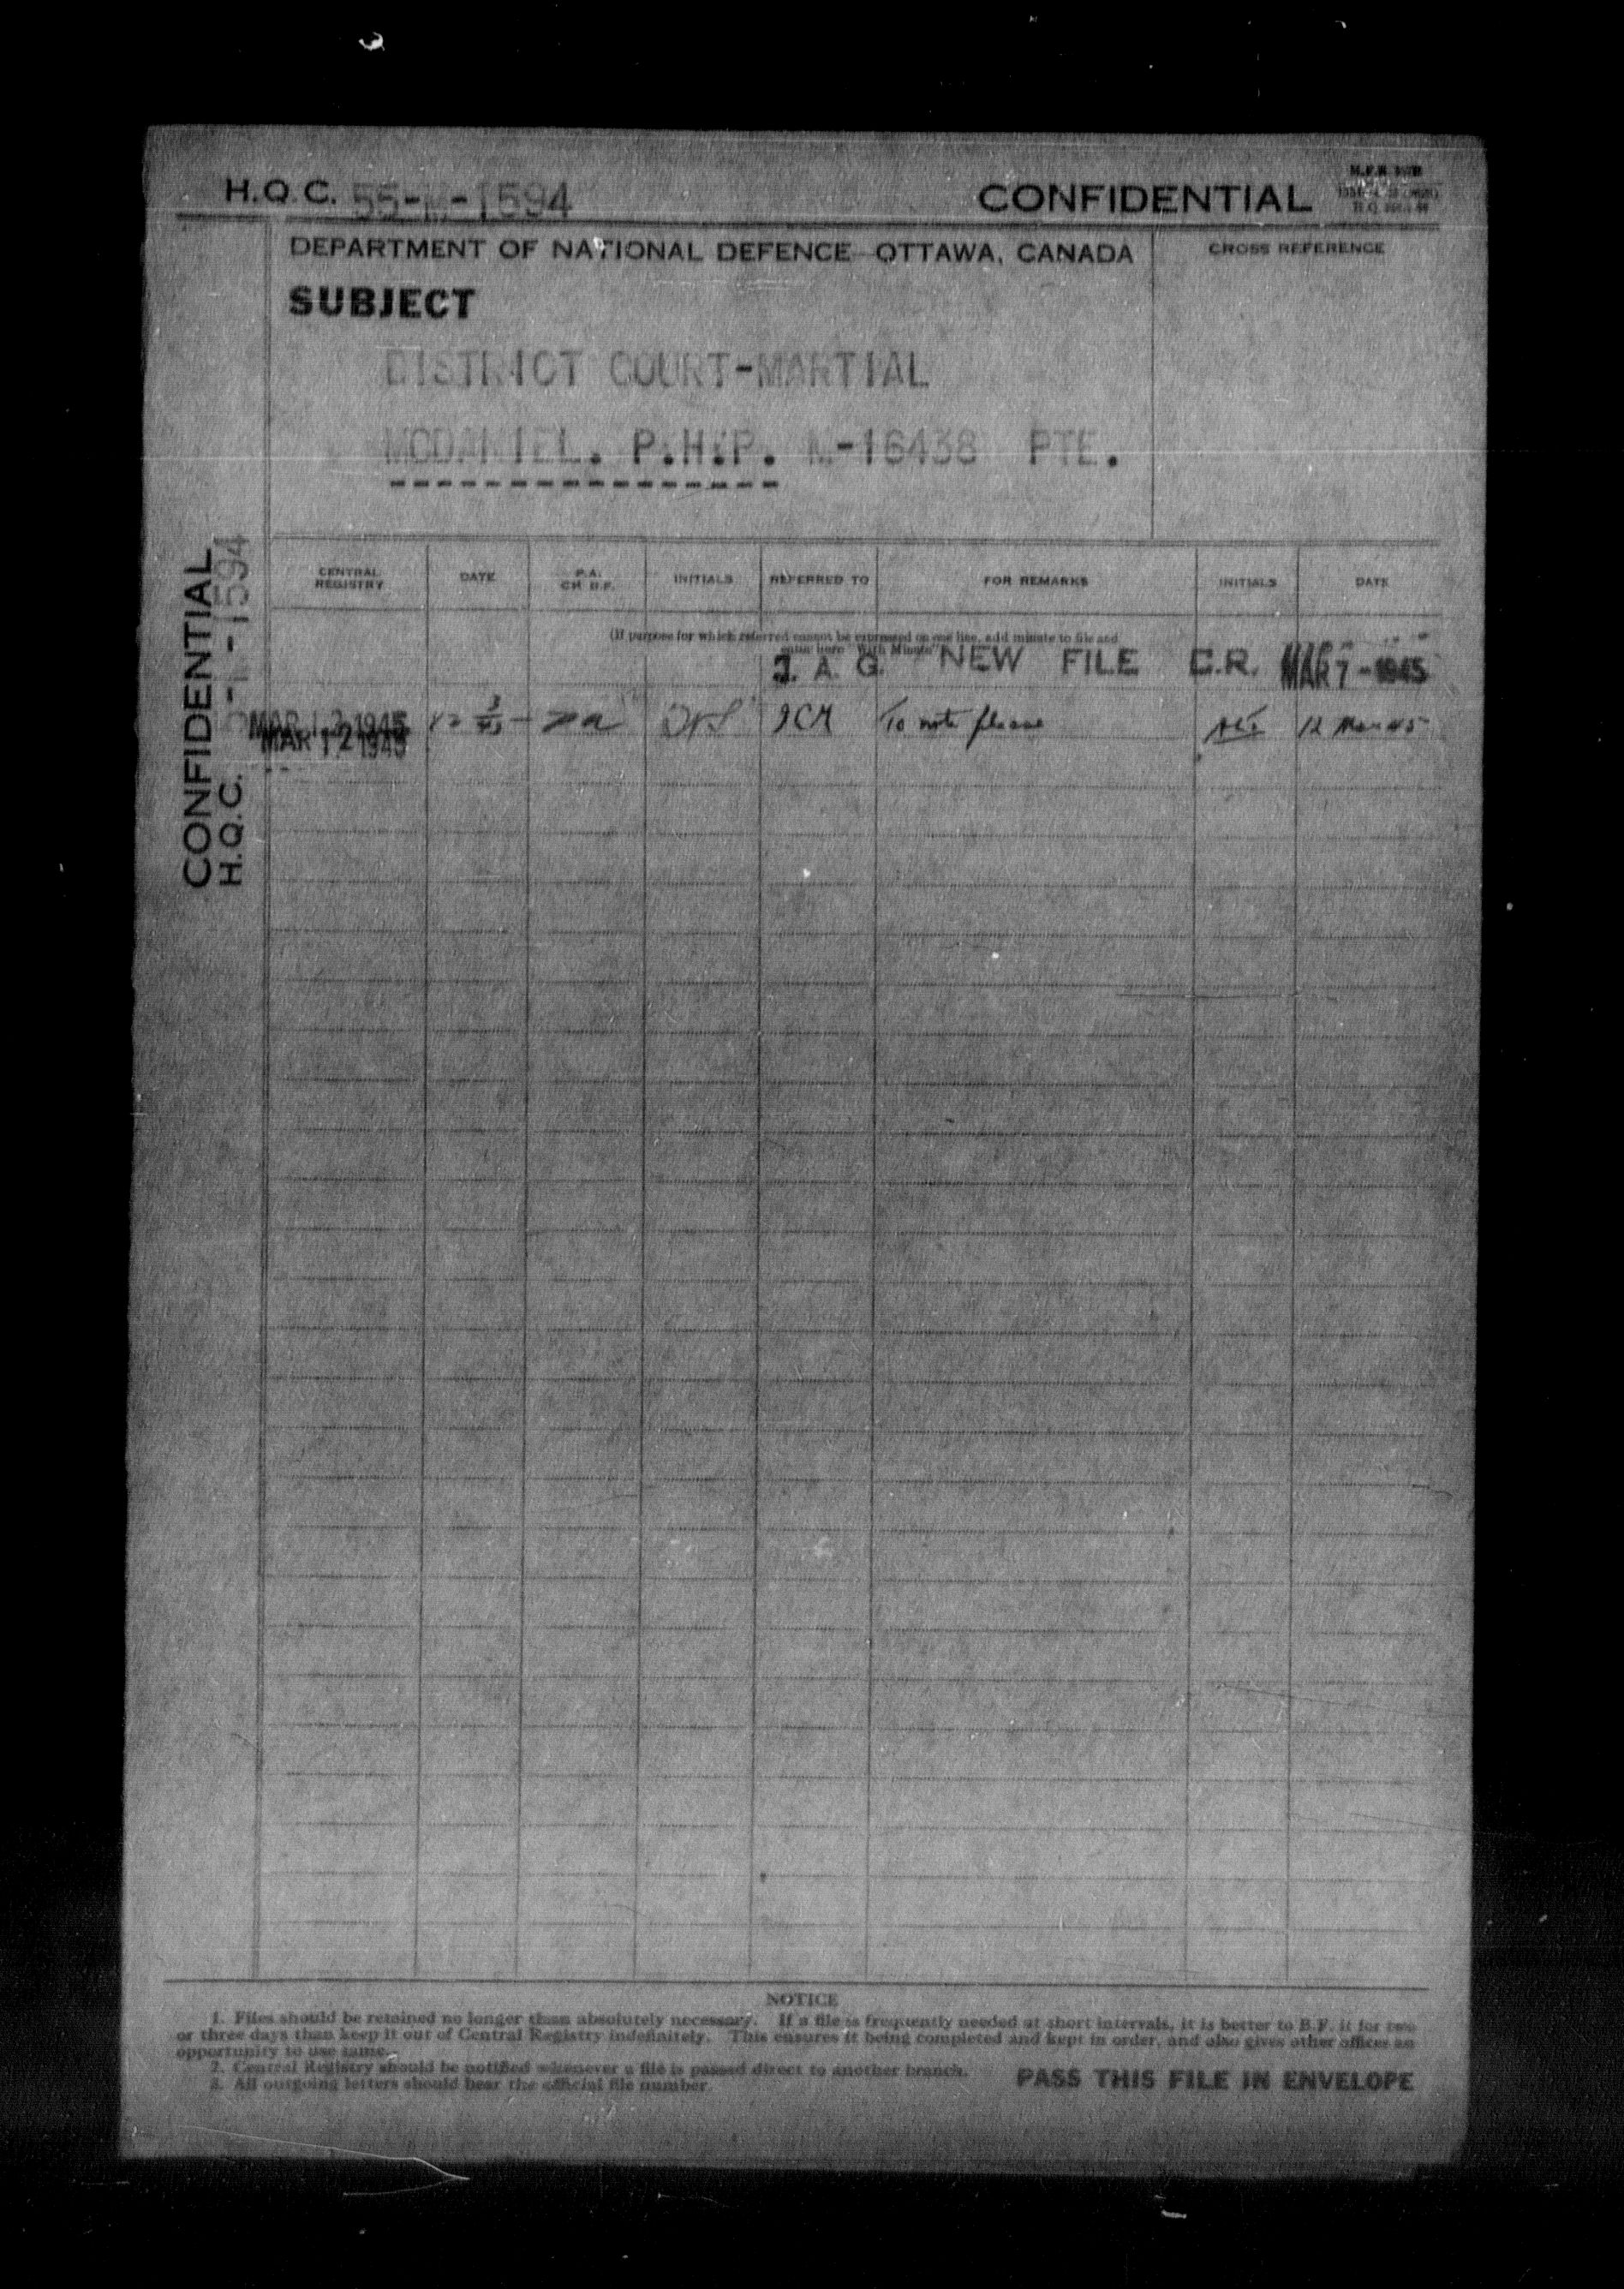 H.Q.C. 55-M-1594
CONFIDENTIAL
DEPARTMENT OF NATIONAL DEFENCE—OTTAWA, CANADA
CROSS REFERENCE
SUBJECT
DISTRICT COURT-MARTIAL
MCDANIEL. P.H.P. M-16438 PTE.
CONFIDENTIAL
H.Q.C. 55-M-1594
CENTRAL REGISTRY DATE P.A. OR B.F. INITIALS REFERRED TO FOR REMARKS INITIALS DATE
(If purpose for which referred cannot be expressed on one line, add minute to file and
enter here "With Minute")
J. A. G. NEW FILE C.R. MAR 7 - 1945
MAR 12 1945 12 3/45 PA ICM To note please 12 Mar 45
MAR 12 1945
NOTICE
1. Files should be retained no longer than absolutely necessary. If a file is frequently needed at short intervals, it is better to B.F. it for two
or three days than keep it out of Central Registry indefinitely. This ensures it being completed and kept in order, and also gives other offices an
opportunity to use same.
2. Central Registry should be notified whenever a file is passed direct to another branch.
3. All outgoing letters should bear the official file number.
PASS THIS FILE IN ENVELOPE